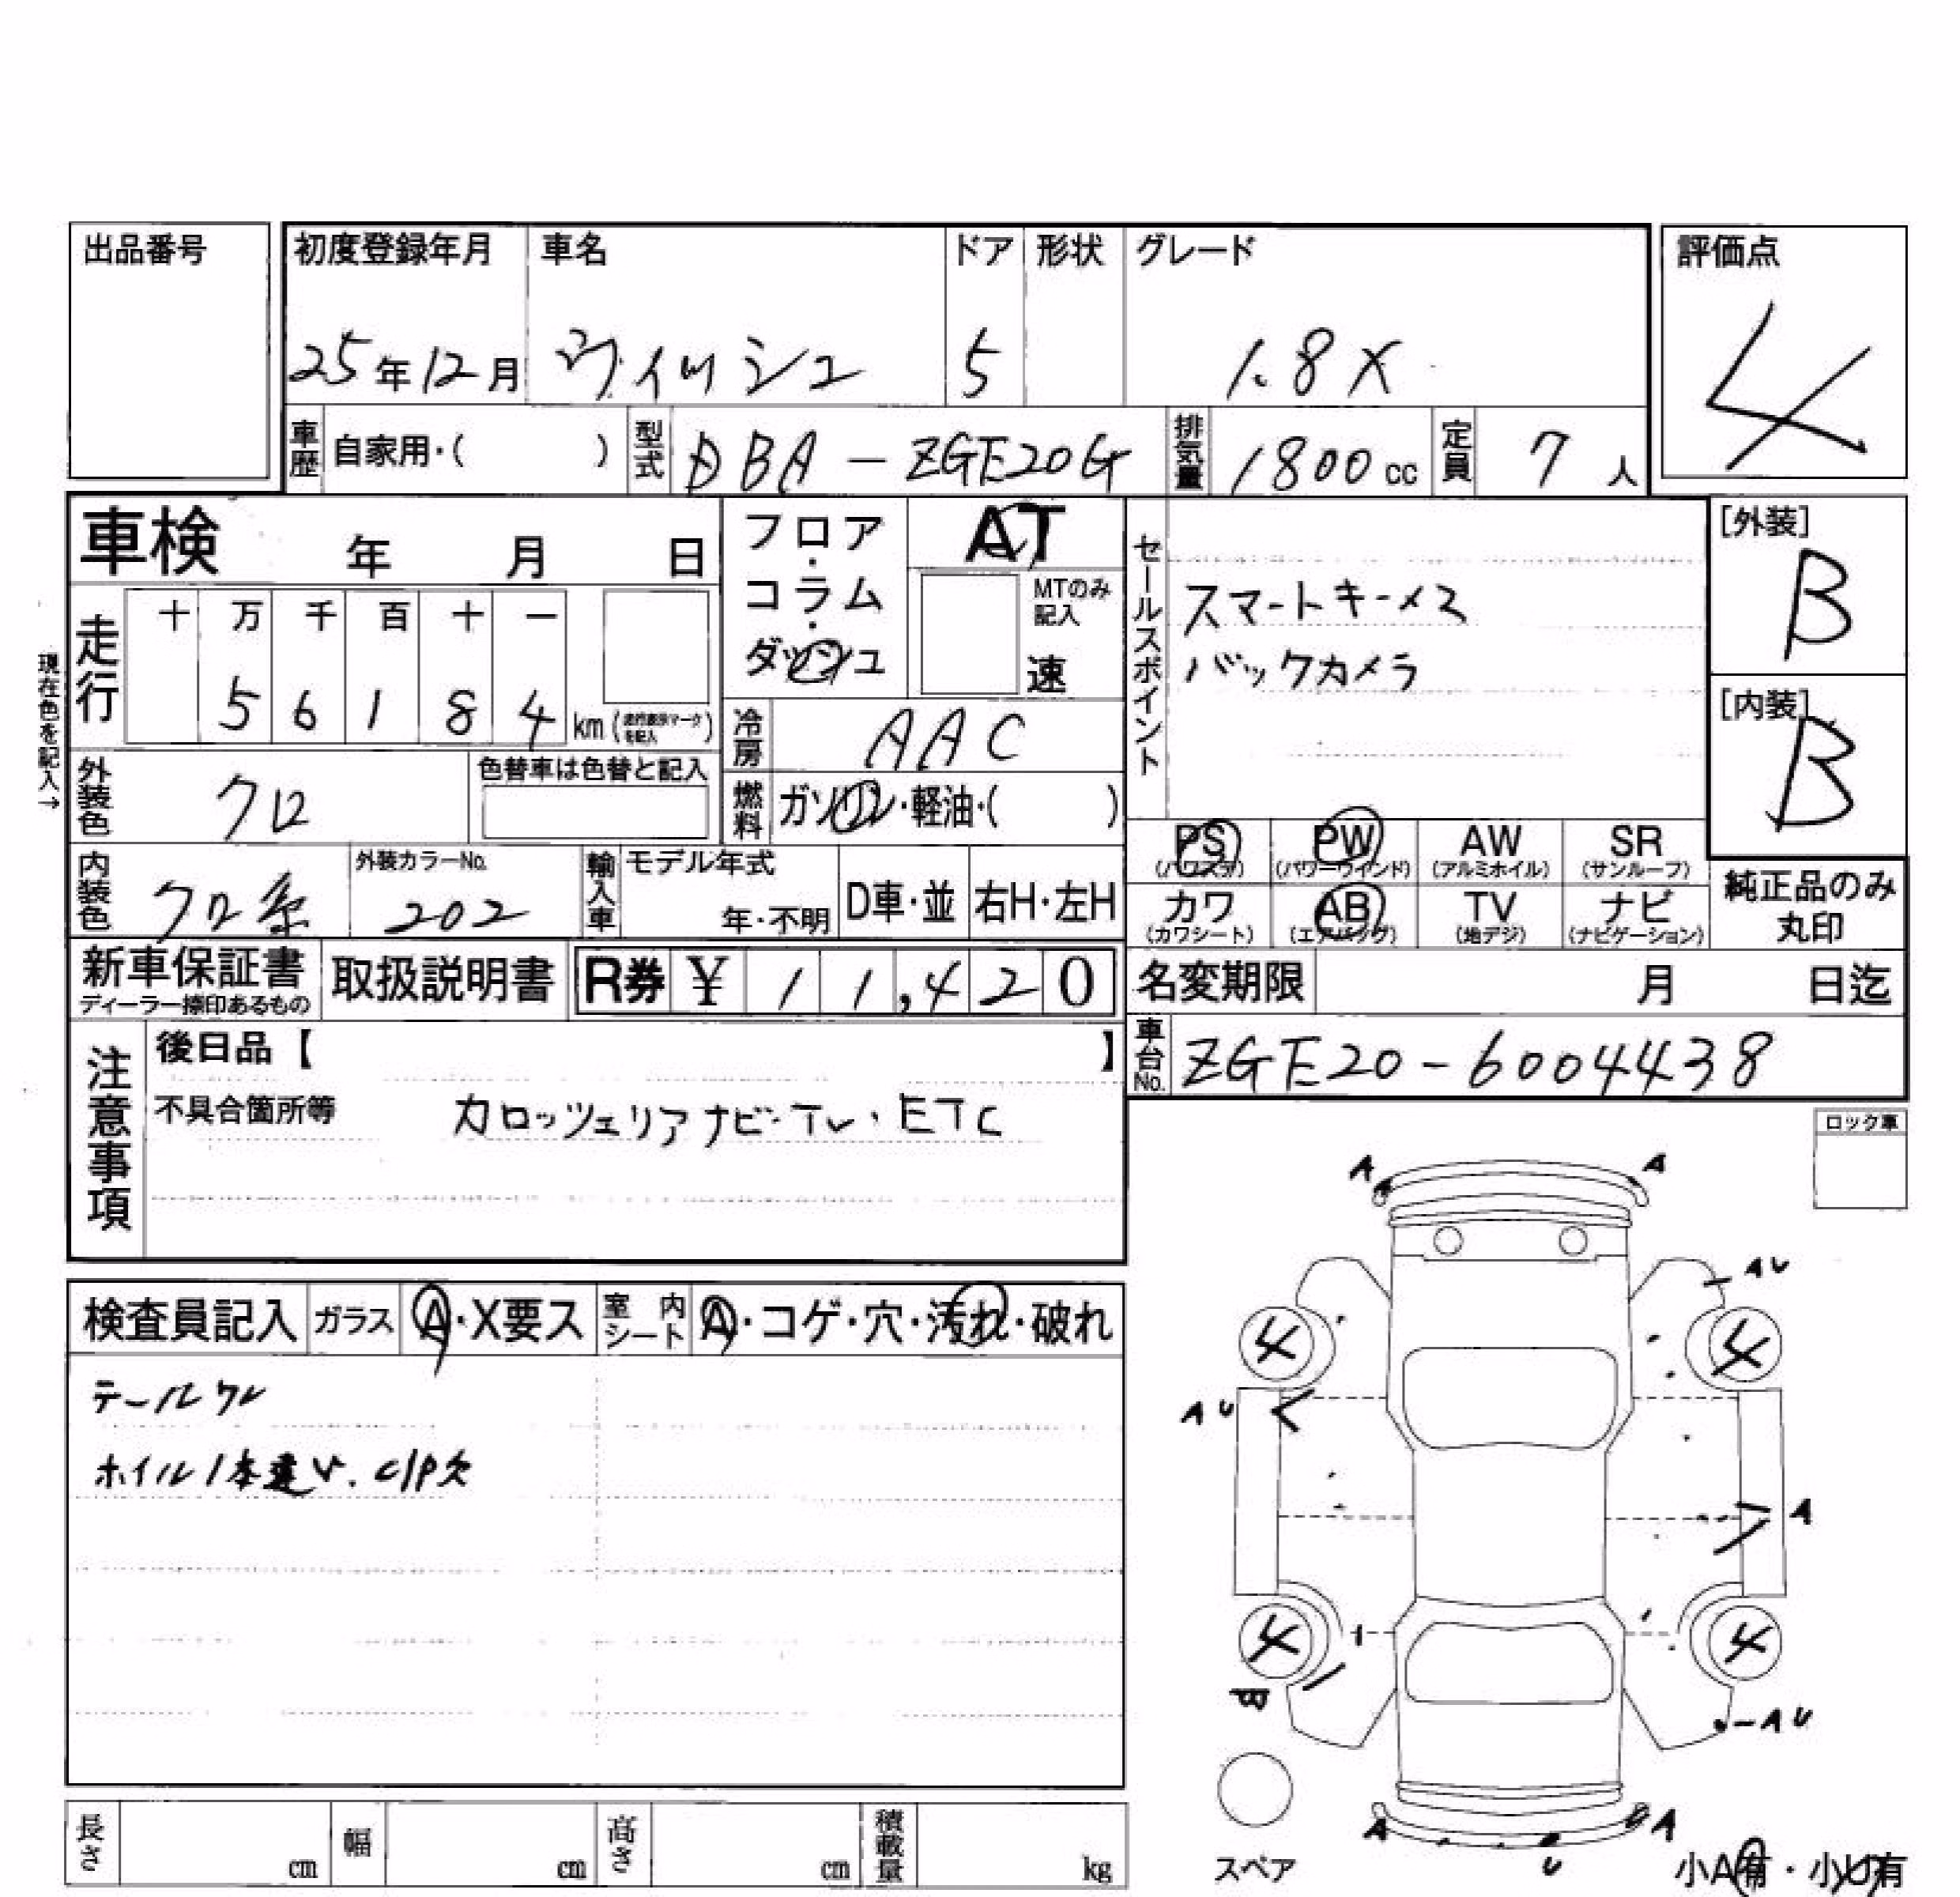 出品番号
初度登録年月 車名 ドア 形状 グレード 評価点
25年12月 ウィッシュ 5 1.8X 4
車歴 自家用・( ) 型式 DBA-ZGE20G 排気量 1800cc 定員 7人
車検 年 月 日
フロア・コラム・ダッシュ
AT
MTのみ記入
速
セールスポイント
スマートキーメ2
バックカメラ
[外装]
B
[内装]
B
現在色を記入→
走行 十 万 千 百 十 一
5 6 1 8 4 km (走行表示マークを記入)
冷房 AAC
外装色 クロ 色替車は色替と記入
燃料 ガソリン・軽油・( )
内装色 クロ系 外装カラーNo. 202
輸入車 モデル年式 年・不明 D車・並 右H・左H
PS (パワステ) PW (パワーウインド) AW (アルミホイル) SR (サンルーフ)
カワ (カワシート) AB (エアバッグ) TV (地デジ) ナビ (ナビゲーション)
純正品のみ丸印
新車保証書 ディーラー捺印あるもの 取扱説明書 R券 ¥ 11,420
名変期限 月 日迄
車台No. ZGE20-6004438
注意事項
後日品【 】
不具合箇所等 カロッツェリアナビ・TV・ETC
ロック車
検査員記入 ガラス A・X要ス 室内シート A・コゲ・穴・汚れ・破れ
テールワレ
ホイル1本違い. C/P欠
A A
AU
4 4
AU
A
4 4
AU
A A
U
スペア
小A有・小U有
長さ cm 幅 cm 高さ cm 積載量 kg